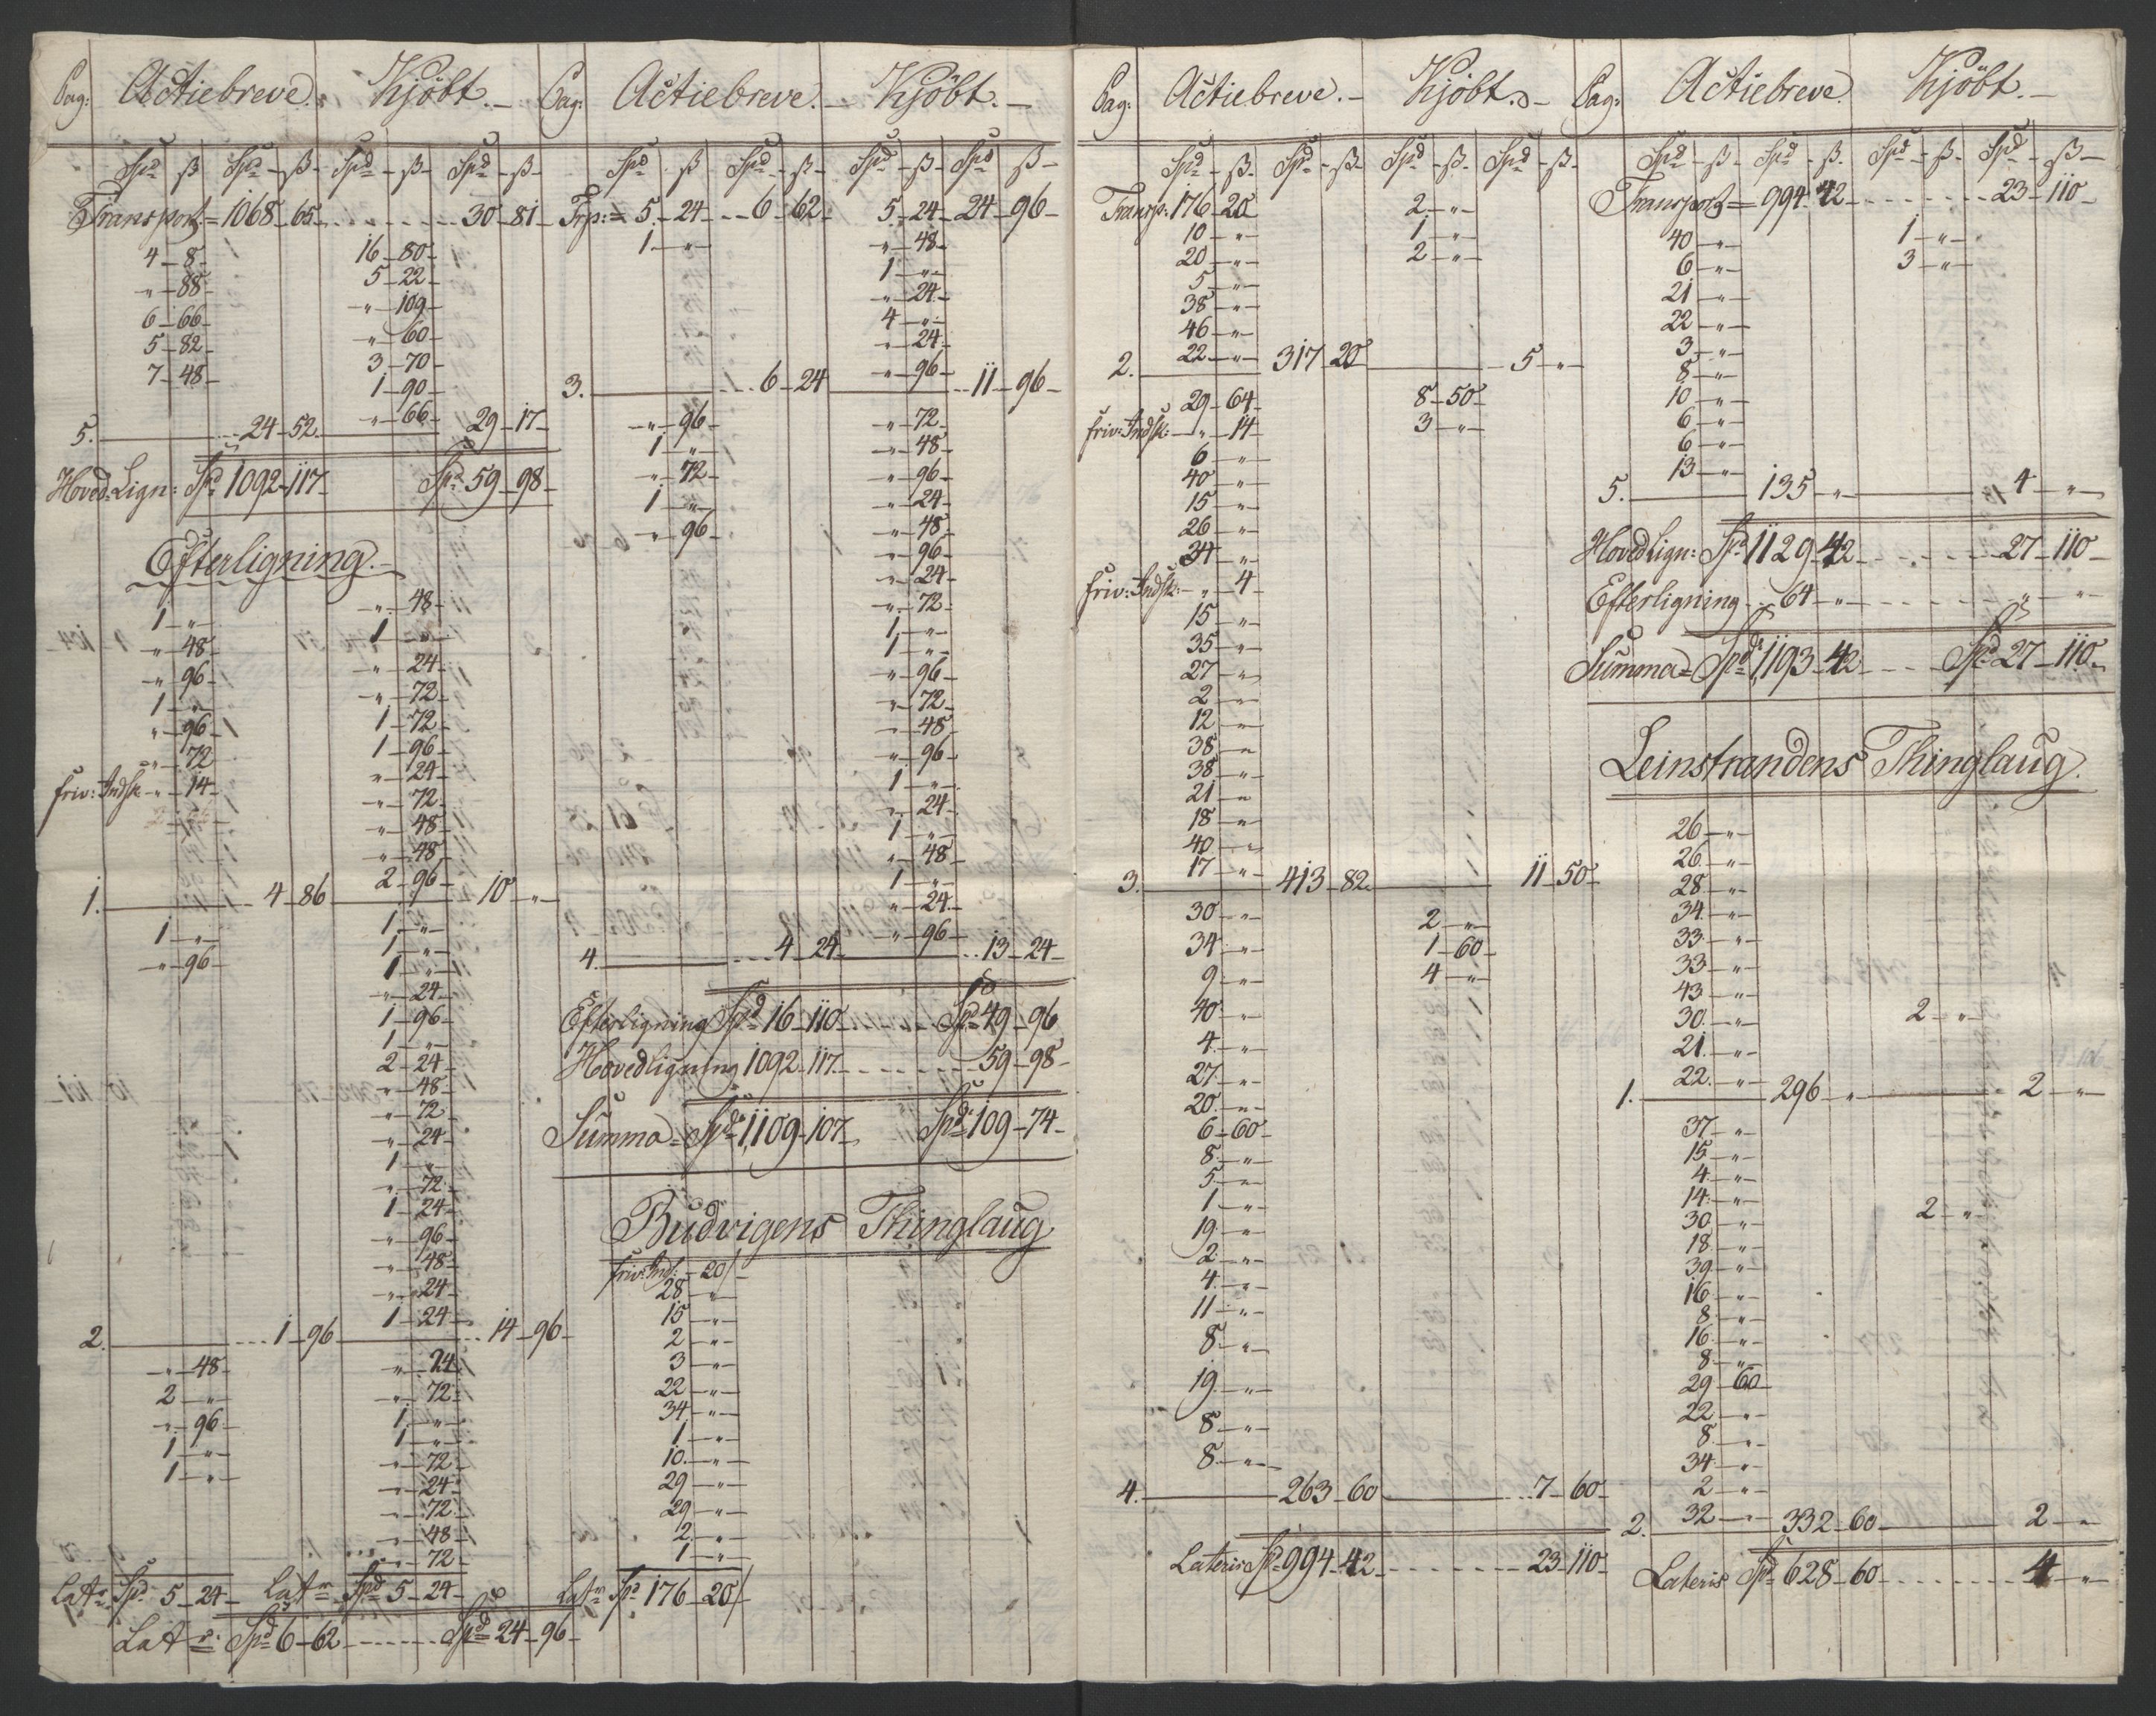 Pag: Actiebreve. Kjöbt. –
Spd ß Spd – ß – Spd – ß – Spd – ß –
Transport = 1068 – 65 . . . . . . 30 – 81
4 – 8 – 16 – 80 –
„ – 88 – 5 – 22 –
6 – 66 – „ – 109 –
5 – 82 – „ – 60 –
7 – 48 – 3 – 70 –
1 – 90 –
5. 24 – 52. „ – 66 – 29 – 17 –
Hoved-Lign: Spd 1092 – 117 – Spd 59 – 98 –
Efterligning. –
1 – „ – „ – 48 –
„ – 48 – 1 – „ –
„ – 96 – „ – 24 –
1 – „ – „ – 72 –
„ – 96 – 1 – 72 –
„ – 72 1 – 96 –
friv: Indsk – „ – 14 – „ – 24 –
„ – 72 –
„ – 48 –
„ – 48 –
1. 4 – 86 2 – 96 – 10 – „ –
1 – „ – 1 – „ –
„ – 96 – 1 – „ –
1 – „ –
„ – 24 –
1 – 96 –
1 – „ –
2 – 24 –
„ – 48 –
„ – 72 –
„ – 24 –
1 – „ –
„ – 72 –
1 – 24 –
„ – 96 –
„ – 48 –
„ – 24 –
2. 1 – 96 1 – 24 – 14 – 96 –
„ – 48 – „ – 24
2 – „ – „ – 72 –
„ – 96 – 1 – „ –
1 – „ – 1 – „ –
1 – „ – „ – 72 –
„ – 24 –
„ – 72 –
„ – 48 –
„ – 72 –
Latr. Spd 5 – 24 – Latr Spd 5 – 24 –
Latr: Spd 6 – 62 . . . . . . Spd 24 – 96 –
Pag: Actiebreve. – Kjöbt. –
Spd ß Spd – ß – Spd – ß – Spd ß –
Trp: = 5 – 24 – – 6 – 62 – 5 – 24 – 24 – 96 –
1 – „ – „ – 48 –
1 – „ –
„ – 24 –
4 – „ –
„ – 24 –
3. 6 – 24 „ – 96 – 11 – 96 –
„ – 96 – „ – 72 –
1 – „ – „ – 48 –
„ – 72 – „ – 96 –
1 – „ – „ – 24 –
„ – 96 – „ – 48 –
„ – 96 –
„ – 24 –
„ – 72 –
1 – „ –
1 – „ –
„ – 96 –
„ – 72 –
„ – 48 –
„ – 96 –
1 – „ –
„ – 24 –
1 – „ –
„ – 48 –
1 – „ –
„ – 24 –
4. 4 – 24 „ – 96 – 13 – 24 –
Efterligning Spd 16 – 110 . . . . . . Spd 49 – 96
Hovedligning 1092 – 117 . . . . . . 59 – 98 –
Summa = Spd 1,109 – 107 – Spd 109 – 74 –
Budvigens Thinglaug
friv: Ind: – 20 –
28 – „ –
15 – „ –
2 – „ –
3 – „ –
22 – „ –
34 – „ –
1 – „ –
10 – „ –
29 – „ –
29 – „ –
2 – „ –
1 – „ –
Latr Spd 176 – 20 –
Pag: Actiebreve. – Kjöbt. –
Spd – ß – Spd – ß – Spd – ß – Spd – ß –
Transp: 176 – 20 2 – „ –
10 – „ – 1 – „ –
20 – „ – 2 – „ –
5 – „ –
38 – „ –
46 – „ –
2. 22 – „ – 317 – 20 5 – „ –
29 – 64 – 8 – 50 –
friv: Indsk: – „ – 14 – 3 – „ –
6 – „ –
40 – „ –
15 – „ –
26 – „ –
34 – „ –
friv: Indsk: – „ – 4 –
15 – „ –
35 – „ –
27 – „ –
2 – „ –
12 – „ –
38 – „ –
38 – „ –
21 – „ –
18 – „ –
40 – „ –
3. 17 – „ – 413 – 82 11 – 50 –
30 – „ – 2 – „ –
34 – „ – 1 – 60 –
9 – „ – 4 – „ –
40 – „ –
4 – „ –
27 – „ –
20 – „ –
6 – 60 –
8 – „ –
5 – „ –
1 – „ –
19 – „ –
2 – „ –
4 – „ –
11 – „ –
8 – „ –
19 – „ –
8 – „ –
8 – „ –
4. 263 – 60 7 – 60 –
Lateris Spd 994 – 42 . . . . . . 23 – 110 –
Pag: Actiebreve. Kjöbt. –
Spd – ß – Spd – ß – Spd – ß – Spd – ß –
Transport = 994 – 42 . . . . . . 23 – 110 –
40 – „ – 1 – „ –
6 – „ – 3 – „ –
21 – „ –
22 – „ –
3 – „ –
8 – „ –
10 – „ –
6 – „ –
6 – „ –
13 – „ –
5. 135 – „ – 4 – „ –
HovedLign: Spd 1129 – 42 . . . . . . 27 – 110 –
Efterligning . . 64 – „ . . . . . . „ – „ –
Summa = Spd 1,193 – 42 . . . Spd 27 – 110 –
Leinstrandens Thinglaug.
26 – „ –
26 – „ –
28 – „ –
34 – „ –
33 – „ –
33 – „ –
43 – „ –
30 – „ – 2 – „ –
21 – „ –
1. 22 – „ – 296 – „ 2 – „ –
37 – „ –
15 – „ –
4 – „ –
14 – „ –
30 – „ – 2 – „ –
18 – „ –
39 – „ –
16 – „ –
8 – „ –
16 – „ –
8 – „ –
29 – 60 –
22 – „ –
8 – „ –
34 – „ –
2 – „ –
2. 32 – „ 332 – 60 – 2 – „
Lateris Spd 628 – 60 . . . . . . 4 – „ –